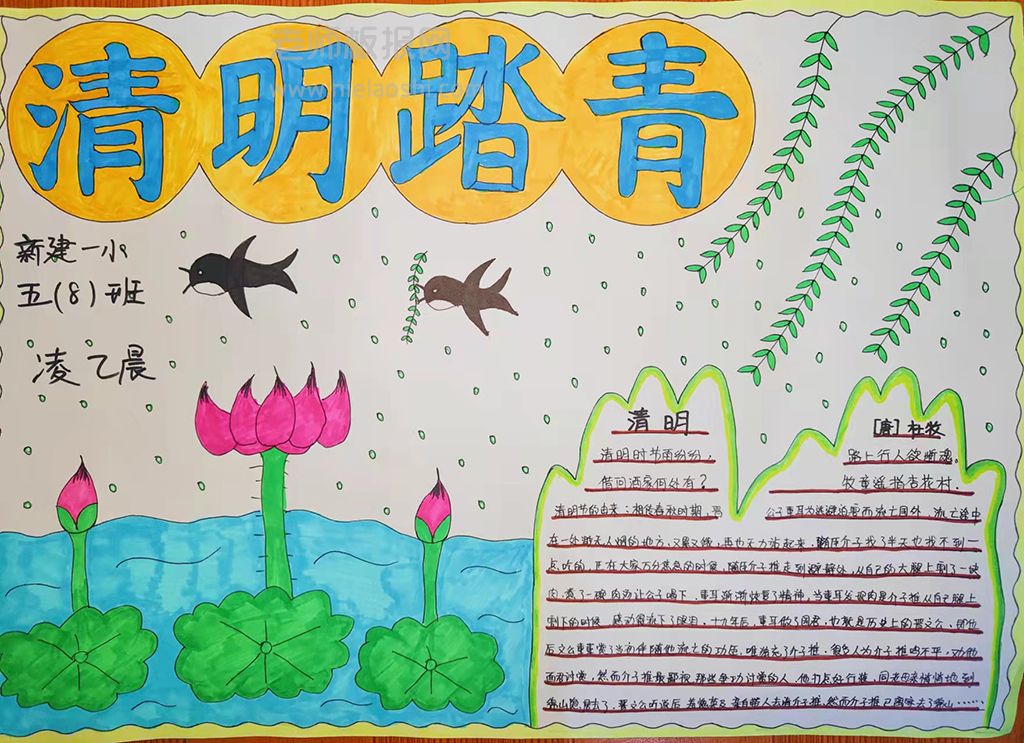 清明踏青
老师板报网
新建一小
五(8)班
凌乙晨
清明
[唐]杜牧
清明时节雨纷纷，路上行人欲断魂。
借问酒家何处有？牧童遥指杏花村.
清明节的由来：相传春秋时期，晋公子重耳为逃避迫害而流亡国外 流亡途中
在一处渺无人烟的地方，又累又饿，再也无力站起来，随臣介子找了半天也找不到一
点吃的，正在大家万分焦急的时候，随臣介子推走到避静处，从自己的大腿上割了一块
肉，煮了一碗肉汤让公子喝下，重耳渐渐恢复了精神，当重耳发现肉是介子推从自己腿上
割下的时候，感动得流下了眼泪，十九年后，重耳做了国君，也就是历史上的晋文公，即位
后文公重重赏了当初伴随他流亡的功臣，唯独忘了介子推，很多人为介子推鸣不平，劝他
面君讨赏，然而介子推最鄙视那些争功讨赏的人，他打点好行装，同老母亲悄悄地到
绵山隐居去了，晋文公听说后